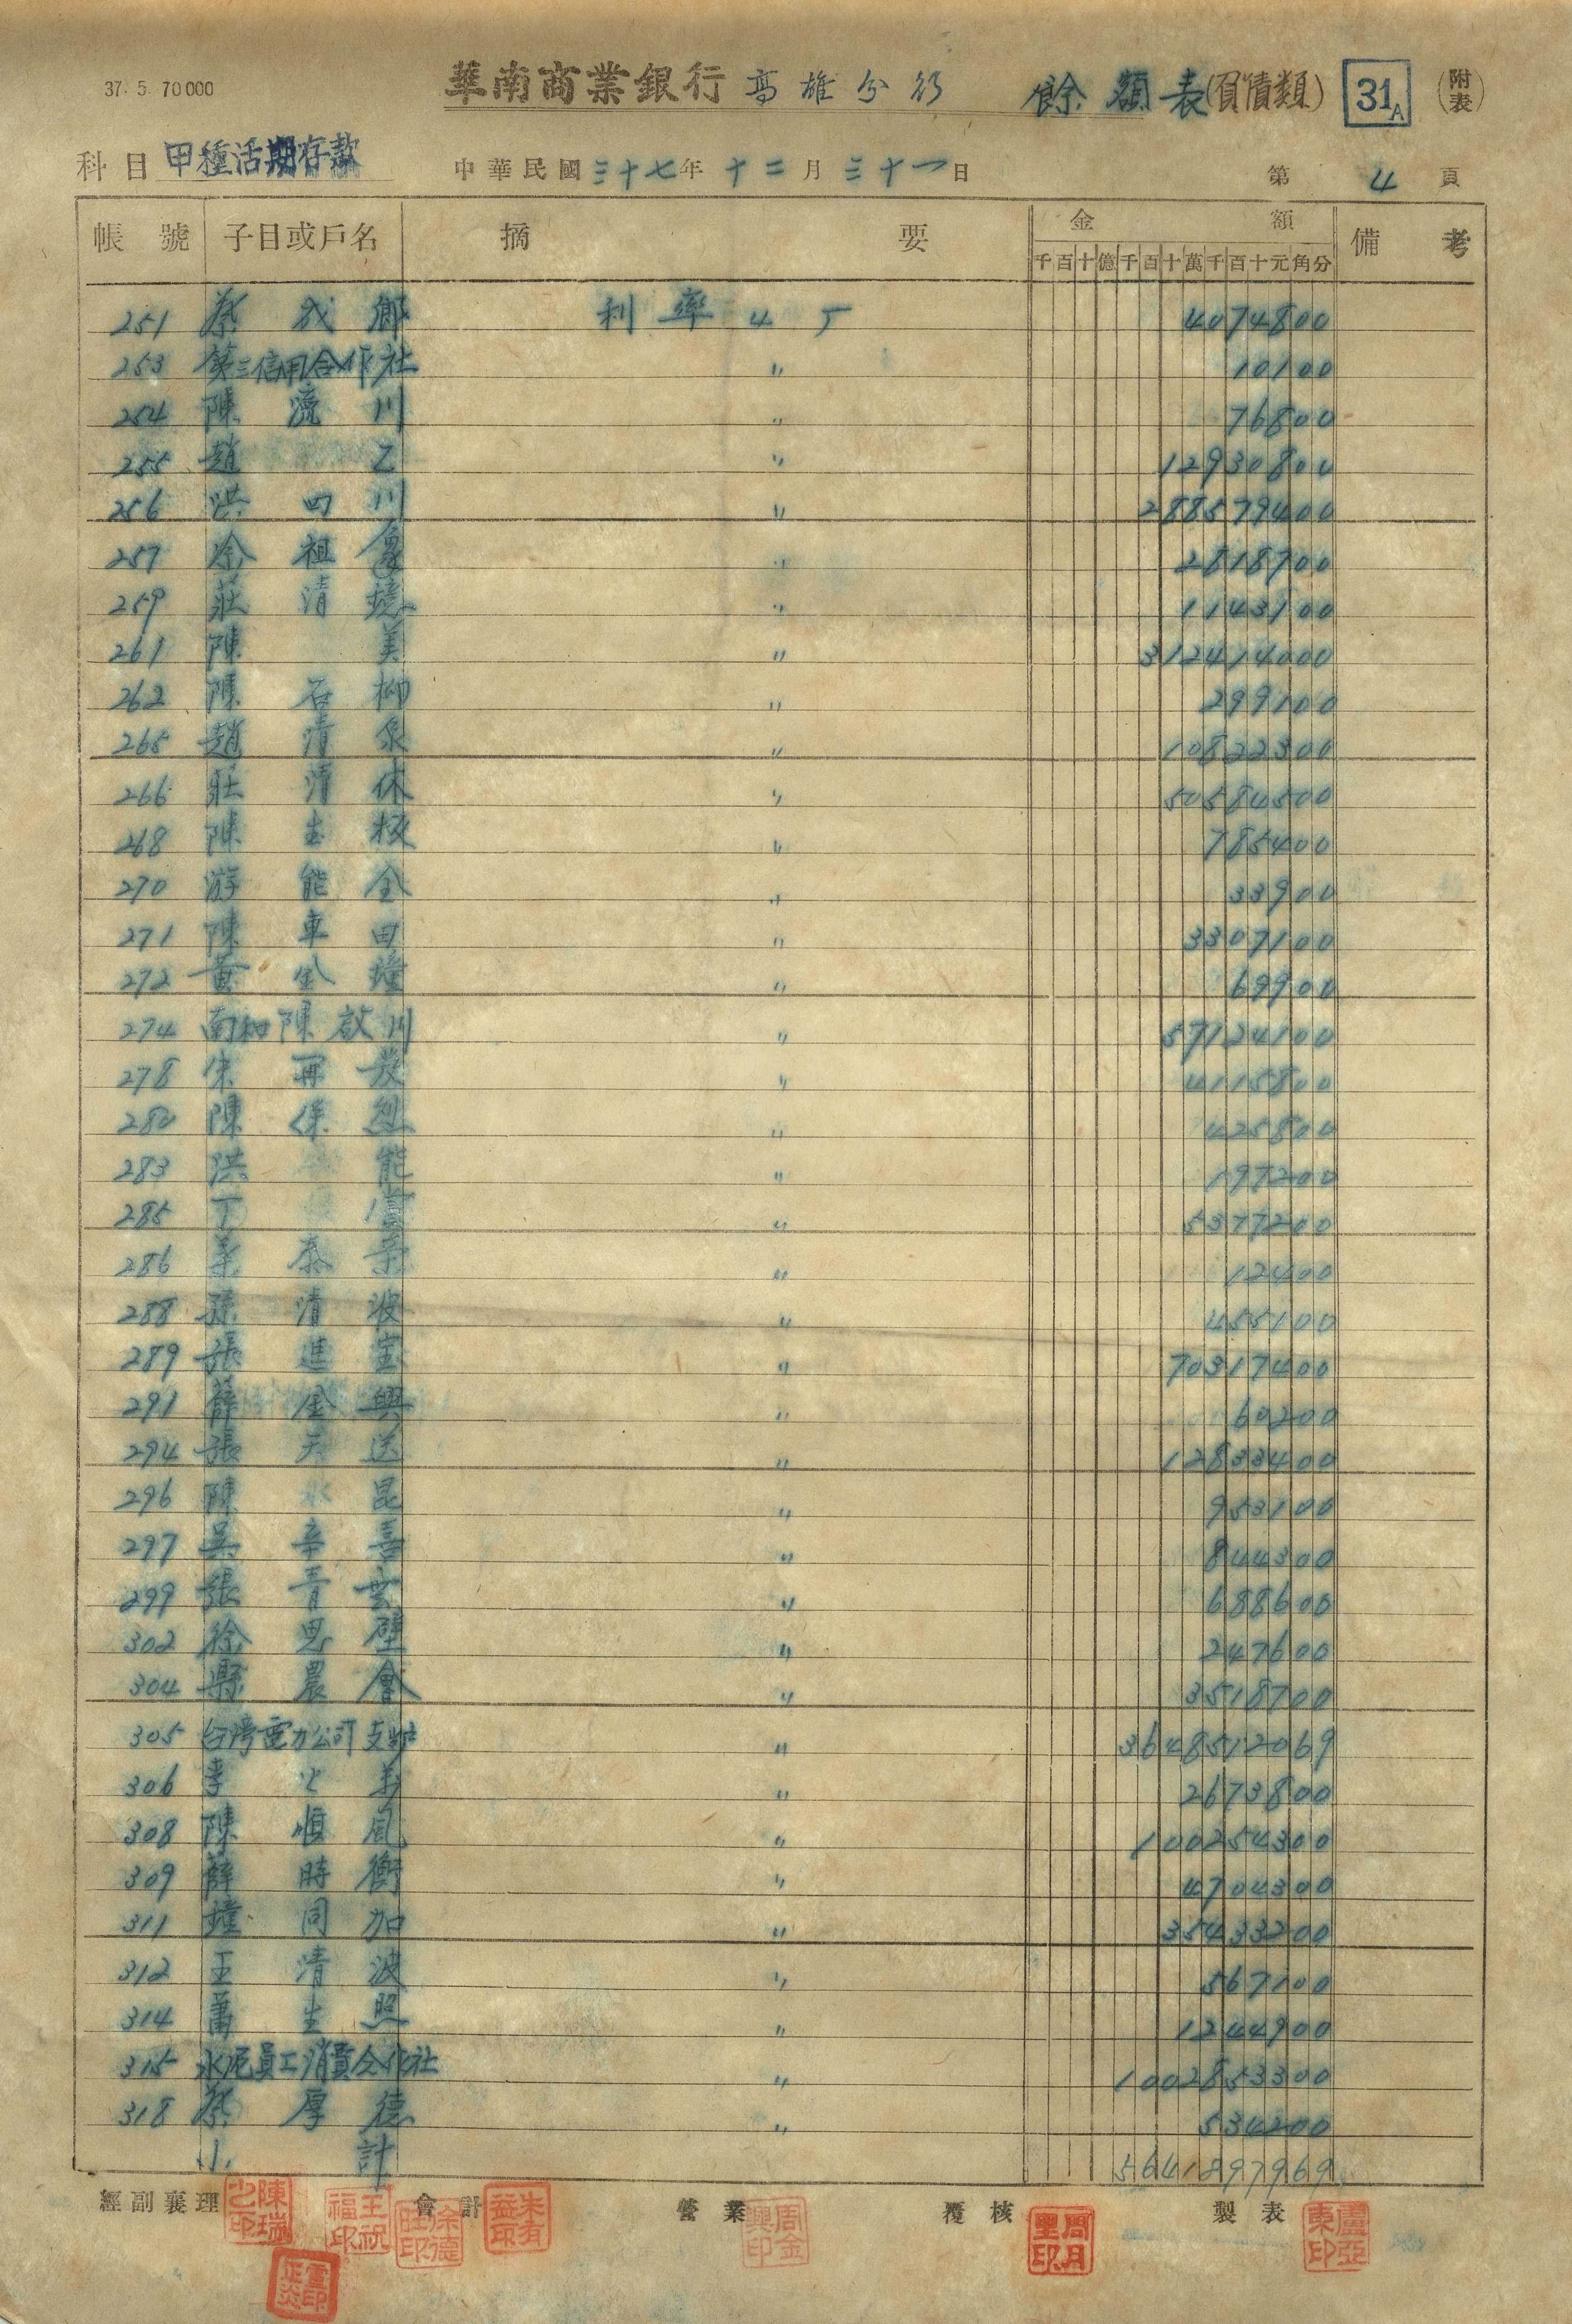 37. 5. 70000
華南商業銀行 高雄分行 餘額表(負債類) 31A (附表)
科目 甲種活期存款 中華民國三十七年十二月三十一日 第4頁
帳號 子目或戶名 摘要 金額 備考
千百十億千百十萬千百十元角分
251 蔡成鄉 利率45 4074800
253 第三信用合作社 〃 10100
254 陳流川 〃 76800
255 趙乙 〃 12930800
256 洪四川 〃 288579400
257 涂祖 〃 2818700
259 莊清 〃 1143100
261 陳美 〃 312414000
262 陳石柳 〃 299100
265 趙清泉 〃 10822300
266 莊清休 〃 50584500
268 陳 〃 785400
270 游能全 〃 33900
271 陳車田 〃 3307100
272 黃金鐘 〃 69900
274 南和陳啟川 〃 57124100
278 朱再發 〃 4115800
280 陳保烈 〃 425800
283 洪能 〃 197200
285 丁 〃 5377200
286 泰 〃 12400
288 孫清波 〃 455100
289 張進宝 〃 70317400
291 薛金興 〃 60200
294 張天送 〃 12833400
296 陳水昆 〃 953100
297 吳辛喜 〃 844300
299 張青雲 〃 688600
302 徐思壁 〃 247600
304 縣農會 〃 3518700
305 台灣電力公司支 〃 3648512069
306 李 〃 2673800
308 陳恒風 〃 100254300
309 薛時衡 〃 4704300
311 鐘同加 〃 35433200
312 王清波 〃 567100
314 蕭生照 〃 1244900
315 水泥員工消費合作社 〃 1002853300
318 蔡厚德 〃 534200
小計 5641897969
經副襄理 會計 營業 覆核 製表
陳瑞之印 王祝福印 徐德旺印 朱有益印 周金興印 周月里印 盧亞東印